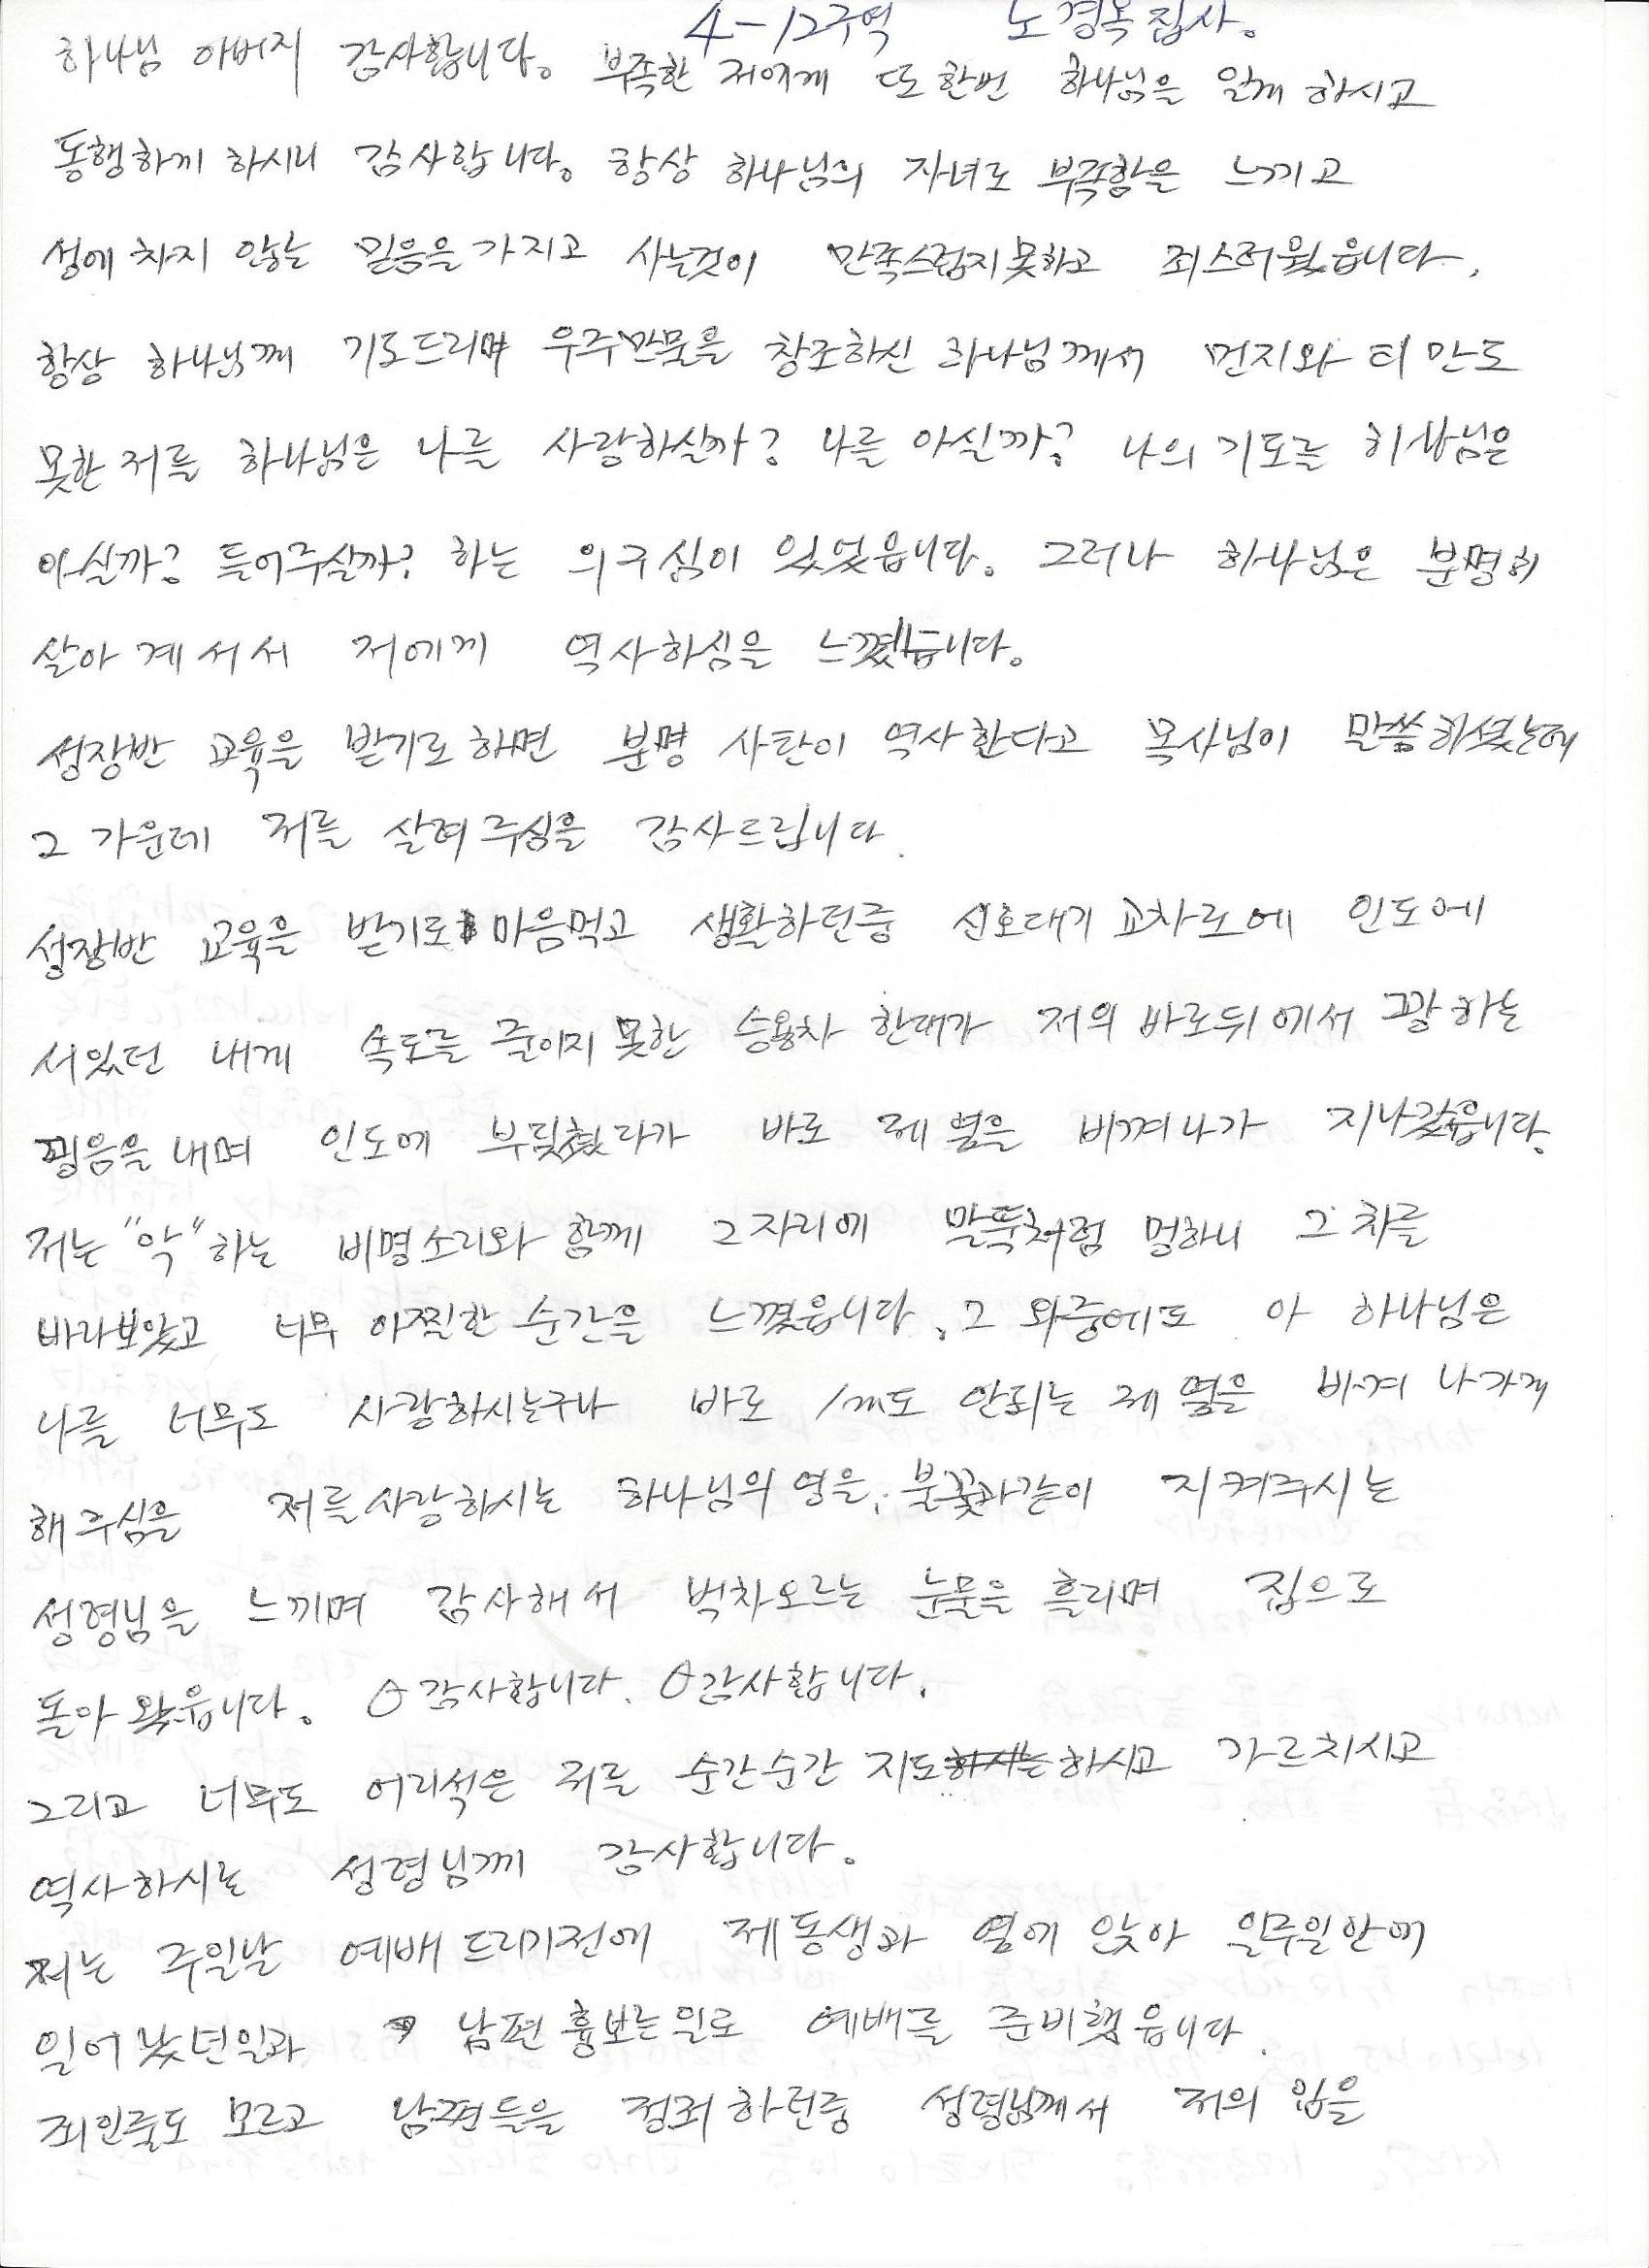 4-12구역 노경옥집사.
하나님 아버지 감사합니다. 부족한 저에게 또한번 하나님을 알게 하시고
동행하게 하시니 감사합니다. 항상 하나님의 자녀로 부족함을 느끼고
성에 차지 않는 믿음을 가지고 사는것이 만족스럽지못하고 죄스러웠읍니다.
항상 하나님께 기도드리며 우주만물을 창조하신 하나님께서 먼지와 티 만도
못한 저를 하나님은 나를 사랑하실까? 나를 아실까? 나의 기도를 하나님은
아실까? 들어주실까? 하는 의구심이 있었읍니다. 그러나 하나님은 분명히
살아 계셔서 저에게 역사하심을 느꼈습니다.
성장반 교육을 받기로하면 분명 사탄이 역사한다고 목사님이 말씀하셨는데
그 가운데 저를 살려주심을 감사드립니다.
성장반 교육을 받기로 마음먹고 생활하던중 신호대기 교차로에 인도에
서있던 내게 속도를 줄이지 못한 승용차 한대가 저의 바로뒤에서 꽝하는
굉음을 내며 인도에 부딪혔다가 바로 제 옆을 비껴나가 지나갔읍니다.
저는 "악"하는 비명소리와 함께 그자리에 말뚝처럼 멍하니 그 차를
바라보았고 너무 아찔한 순간을 느꼈읍니다. 그 와중에도 아 하나님은
나를 너무도 사랑하시는구나 바로 1m도 안되는 제 옆을 비켜 나가게
해주심을 저를사랑하시는 하나님의 영을, 불꽃과같이 지켜주시는
성령님을 느끼며 감사해서 벅차오르는 눈물을 흘리며 집으로
돌아 왔읍니다. 감사합니다. 감사합니다.
그리고 너무도 어리석은 저를 순간순간 지도하시고 가르치시고
역사하시는 성령님께 감사합니다.
저는 주일날 예배드리기전에 제동생과 옆에 앉아 일주일안에
일어났던일과 남편흉보는일로 예배를 준비했읍니다.
죄인줄도 모르고 남편들을 정죄하던중 성령님께서 저의 입을